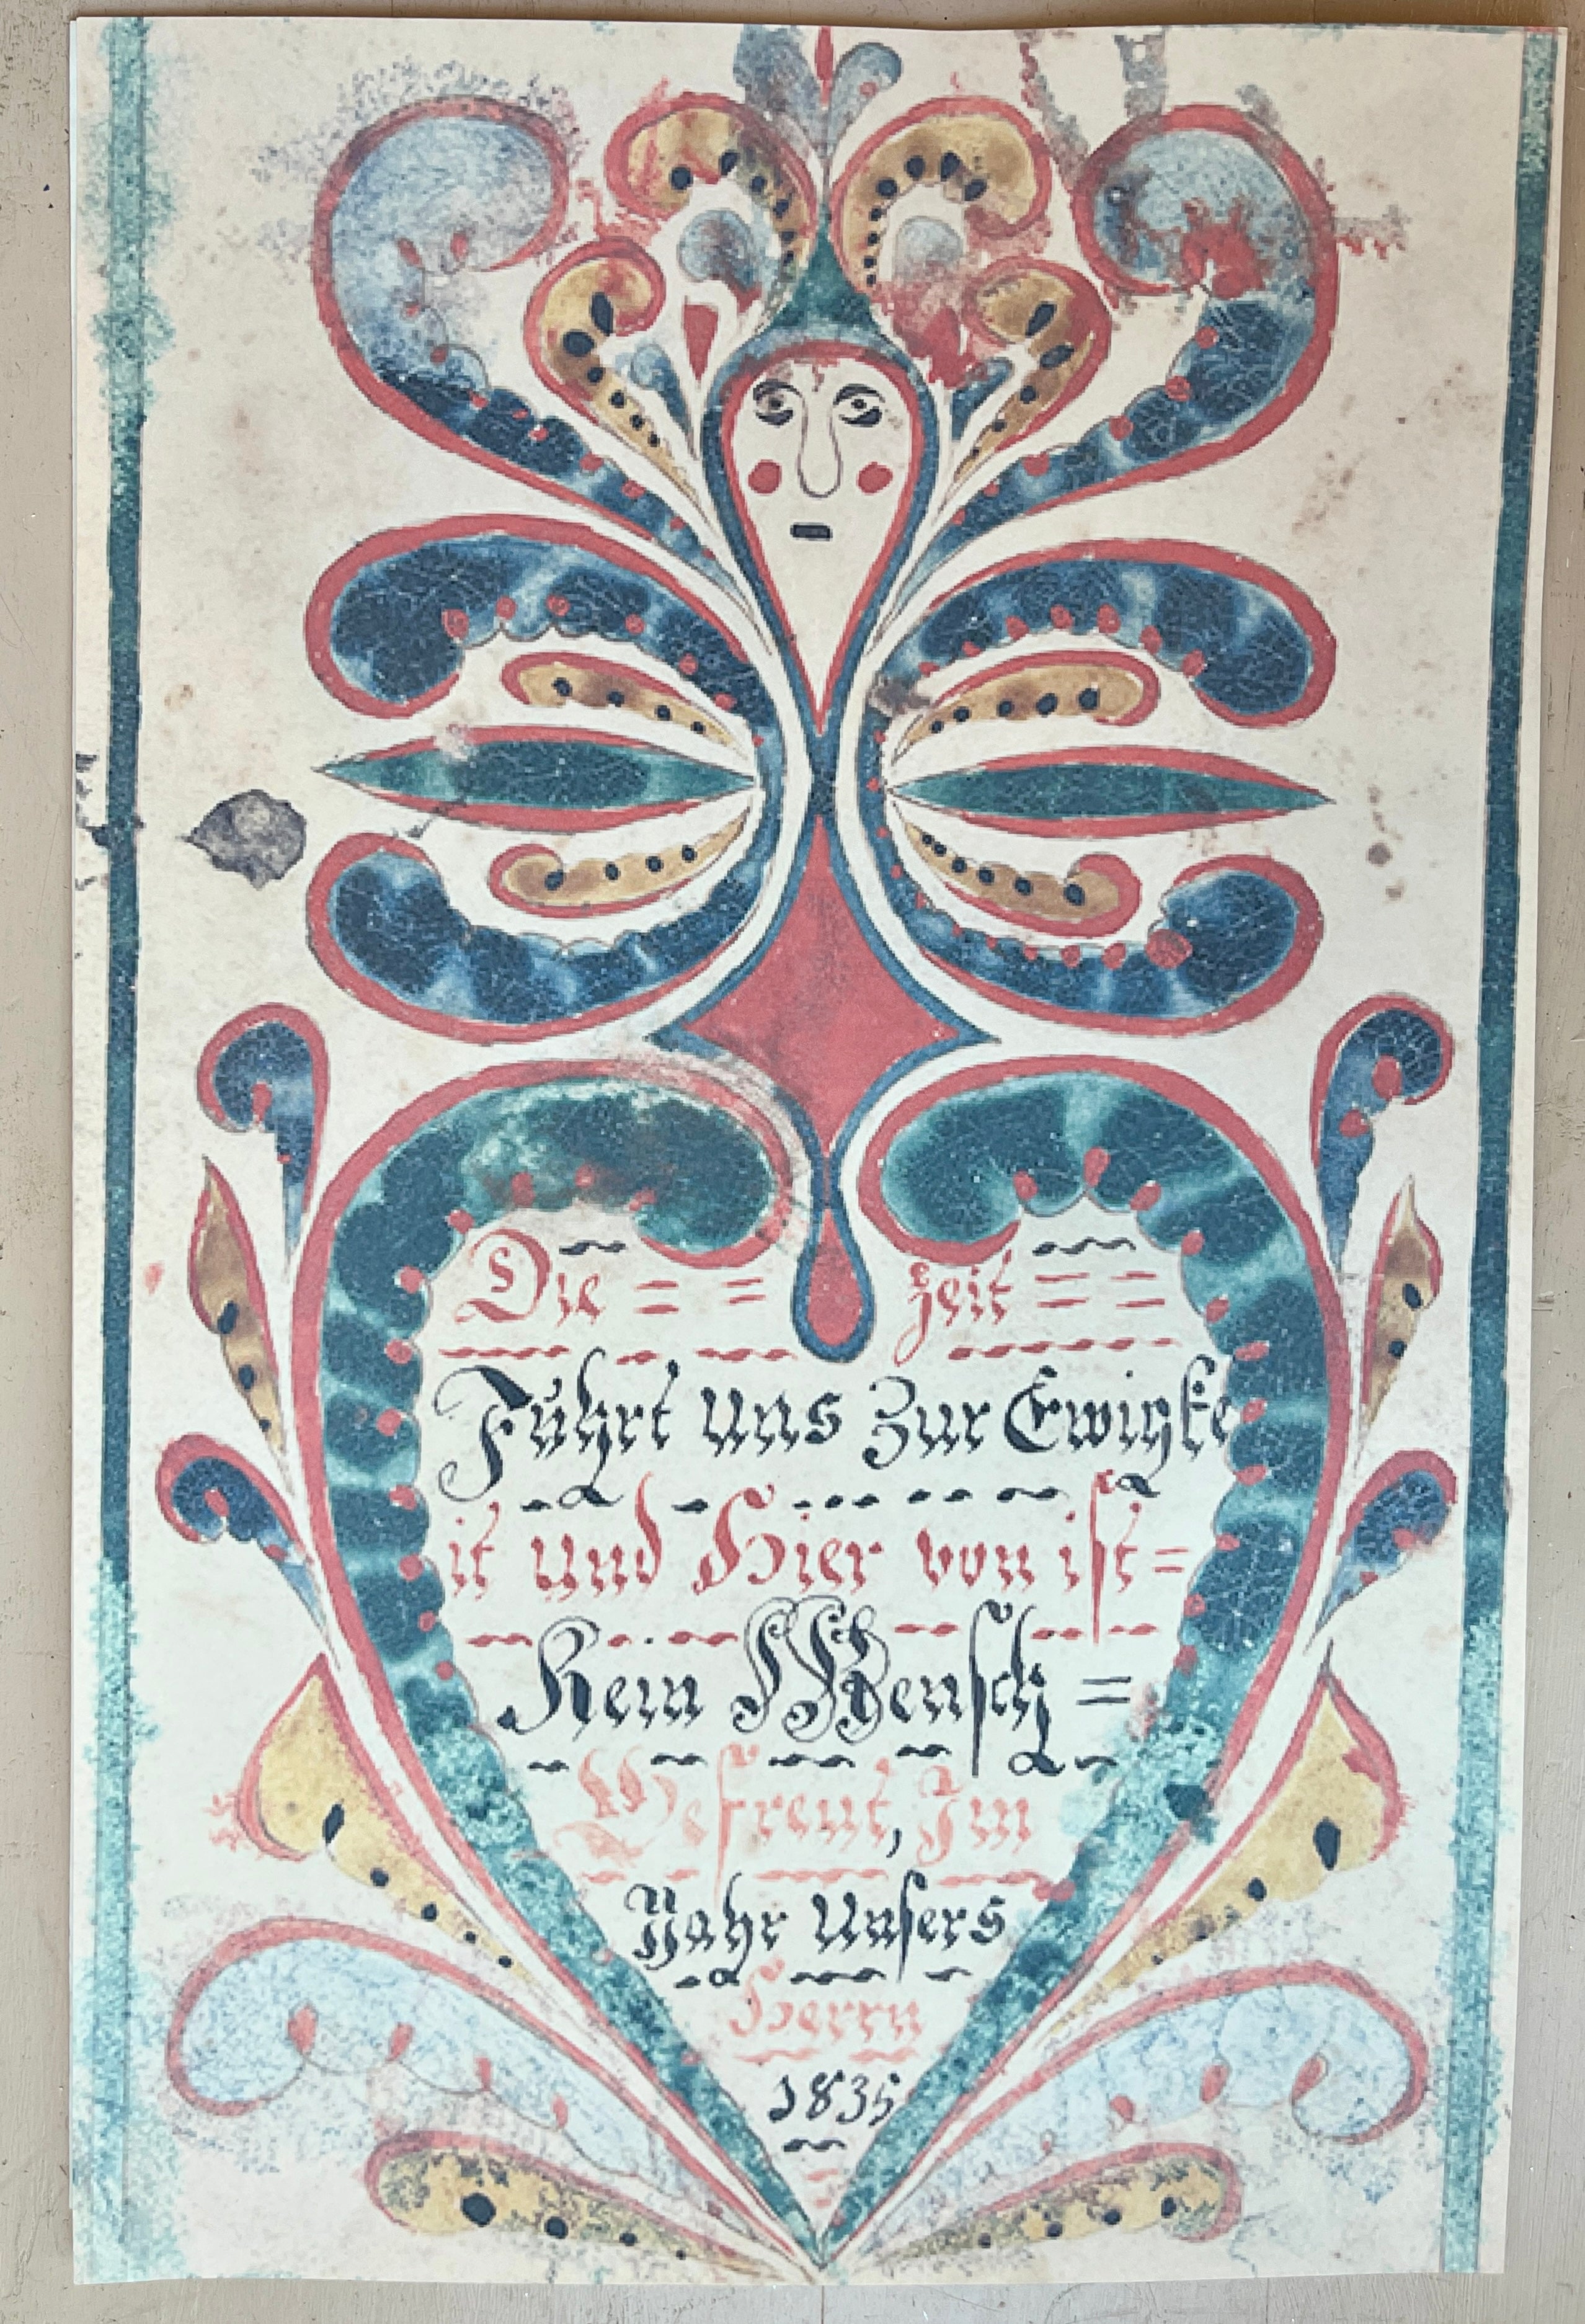 Die = = Zeit = =
Führt uns Zur Ewigke
it und Hier von ist =
Kein Mensch =
Befreut, Im
Jahr Unsers
Herrn
1835